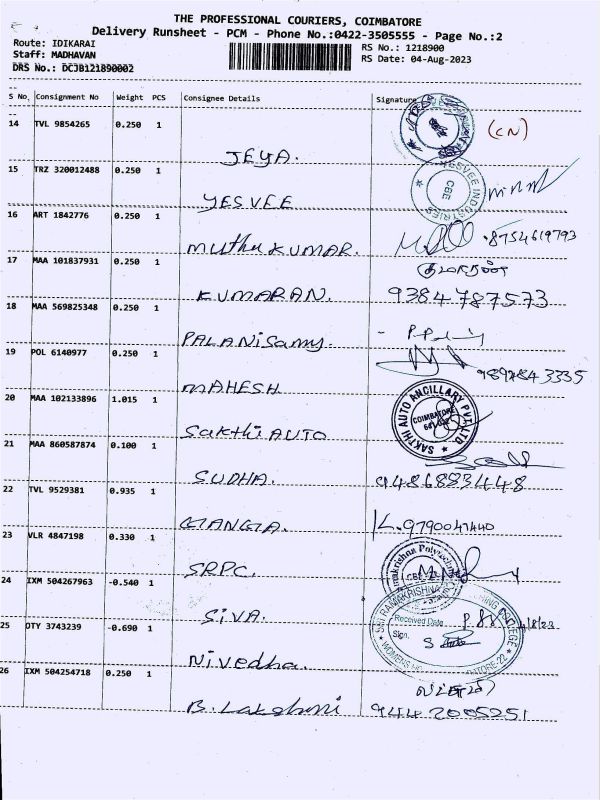 THE PROFESSIONAL COURIERS, COIMBATORE
Delivery Runsheet - PCM - Phone No.:0422-3505555 - Page No.:2
Route: IDIKARAI
Staff: MADHAVAN
DRS No.: DCJB121890002
RS No.: 1218900
RS Date: 04-Aug-2023
S No. Consignment No Weight PCS Consignee Details Signature
14 TVL 9854265 0.250 1
JEYA. (CN)
15 TRZ 320012488 0.250 1
YESVEE
YESVEE INDUSTRIES CBE
16 ART 1842776 0.250 1
Muthu KUMAR. 8754619793
17 MAA 101837931 0.250 1
குமரன்
KUMARAN. 9384787573
18 MAA 569825348 0.250 1
PALANISamy.
19 POL 6140977 0.250 1
MAHESH
20 MAA 102133896 1.015 1
SAKTHI AUTO ANCILLARY PVT LTD COIMBATORE
Sakthi AUTO
21 MAA 860587874 0.100 1
SUDHA. 9486883448
22 TVL 9529381 0.935 1
GANGA. K. 9790041440
23 VLR 4847198 0.330 1
SRPC.
24 IXM 504267963 -0.540 1
SIVA. 4/8/23
SRI RAMAKRISHNA
Received Date
Sign.
25 DTY 3743239 -0.690 1
Nivedha.
26 IXM 504254718 0.250 1
B. Lakshmi 9442005251